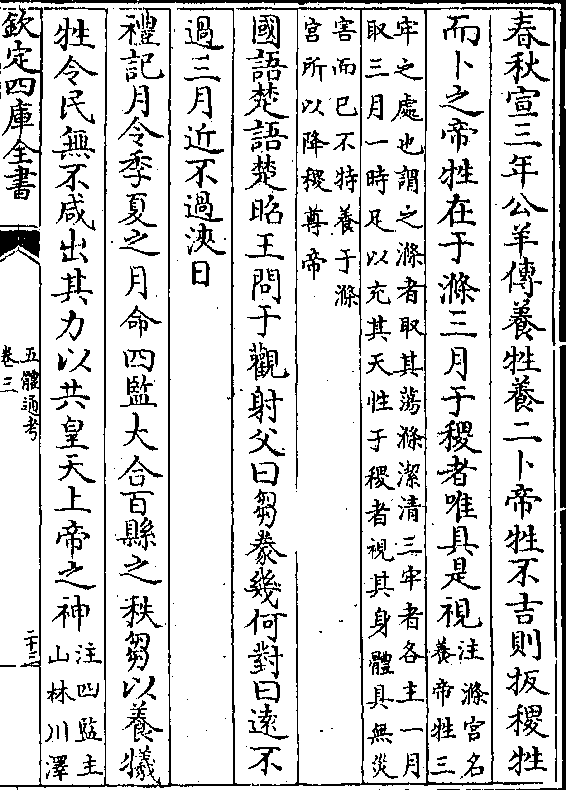 春秋宣三年公羊傳養牲養二卜帝牲不吉則扳稷牲
而卜之帝牲在于滌三月于稷者唯具是視
注滌宫名
養帝牲三
牢之處也謂之滌者取其蕩滌潔清三牢者各主一月
取三月一時足以充其天性于稷者視其身體具無災
害而已不特養于滌
宫所以降稷尊帝
國語楚語楚昭王問于觀射父曰芻豢幾何對曰遠不
過三月近不過浹日
禮記月令季夏之月命四監大合百縣之秩芻以養犧
牲令民無不咸出其力以共皇天上帝之神
注四監主
山林川澤
欽定四庫全書
五禮通考
卷三
二十三